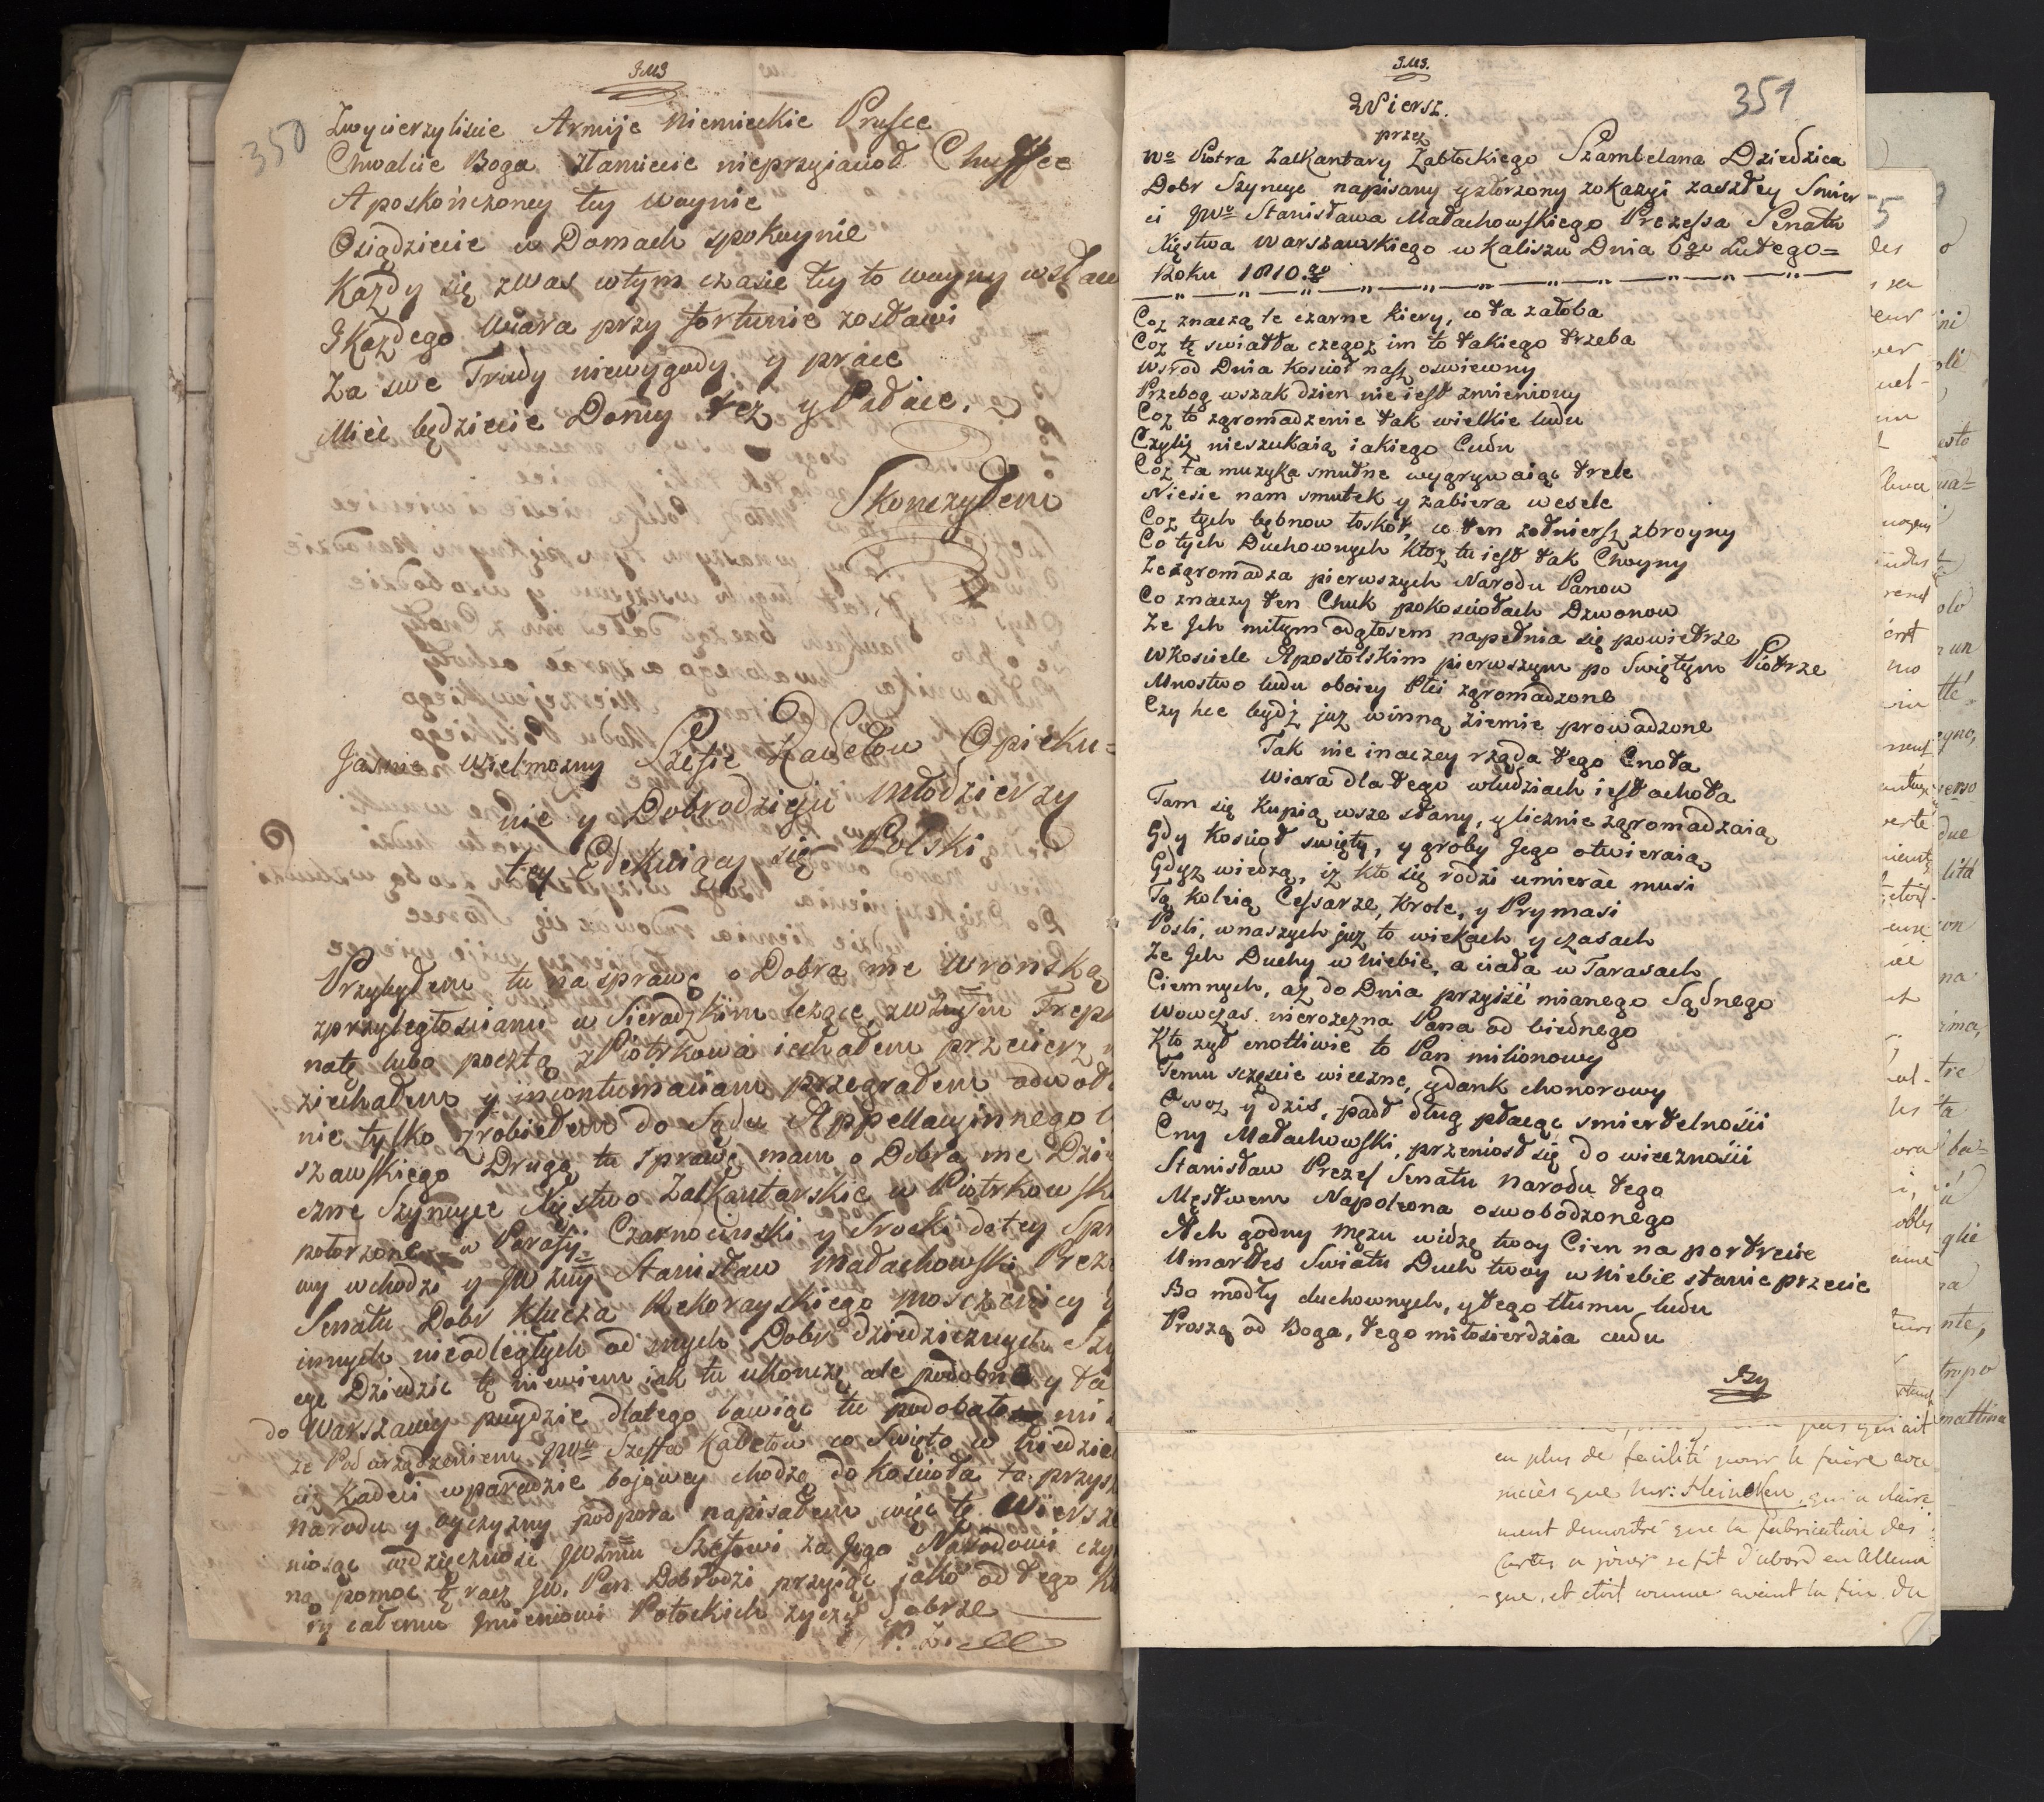 JMJ
350
Zwyciezyliscie Armije Niemieckie Prusce
Chwalcie Boga złamiecie nieprzyjacioł
A poskończoney tey woynie
Osiądziecie w Domach spokoynie
Każdy się zwas wtym czasie tey to woyny wsław
Jkażdego Wiara przy fortunie zostawi
Za swe Trudy niewygody y prace
Mieć będziecie Domy też y Pałace.
Skonczyłem
Jasnie Wielmozny Szefie Kadetow Opieku=
nie y Dobrodzieju Młodzierzy
tey Edekuiącey się Polski
Przybyłem tu na sprawę o Dobra me Wronską
zprzyległosciami w Sieradzkim leżące
natę lubo pocztą zPiotrkowa iechałem przecierz
ziechałem y incontumaciam przegrałem
nie tylko zrobiełem do Sądu Appellacyinnego
szawskiego Drugą tu sprawę mam o Dobra me Dzi
czne Szynczyce Xięstwo Zalkantarskie w Piotrkowsk
położone w Parafij Czarnocinski y Srocki do tey Spr
wy wchodzi y JWżny Stanisław Małachowski Preze
Senatu Dobr Klucza Rekorayskiego Moszczenicy y
innych nieodległych od mych Dobr dziedzicznych Szy
cyc Dziedzic tę niewiem iak tu ukonczę ale podobno y ta
do Warszawy puydzie dlatego bawiąc tu podobało mi
ze Pod urządzeniem JWo Szeffa Kadetow co Swięto w Niedziel
ci Kadeci wparadzie bojowey chodzą do Koscioła ta przysz
Narodu y oyczyzny podpora napisałem więc te Wiersze
niosąc wdzięcznosc JWżmu Szefowi za Jego Narodowi
na pomoc tę racz JW. Pan Dobrodzi przyiąć jako od tego
ry całemu Jmieniowi Potockich zyczy dobrze
P. Z.
JMJ.
351
Wiersz.
przez
Wo Piotra Zalkantary Zabłockiego Szambelana Dziedzica
Dobr Szynczyc napisany yzłorzony zokazyi zaszłey Smier
ci JWo Stanisława Małachowskiego Prezessa Senatu
Xięstwa Warszawskiego w Kaliszu Dnia 6go Lutego=
Roku 1810.go
Coż znaczą te czarne kiery, co ta załoba
Coż tę swiatła czegoż im to takiego trzeba
Wsrod Dnia Koscioł nasz oswiewny
Przebog wszak dzien nie iest zmieniony
Coż to zgromadzenie tak wielkie ludu
Czyliż nieszukaią iakiego Cudu
Coż ta muzyka smutne wygrywaiąc trele
Niesie nam smutek y zabiera wesele
Coż tych bębnow łoskot, co ten zołniersz zbroyny
Co tych Duchownych Ktoż tu iest tak Choyny
Ze zgromadza pierwszych Narodu Panow
Co znaczy ten Chuk pokosciołach Dzwonow
Ze Jch miłym odgłosem napełnia się powietrze
WKosciele Apostolskim pierwszym po Swiętym Piotrze
Mnostwo ludu oboiey Płci zgromadzone
Czy hce bydź już winną ziemie prowadzone
Tak nie inaczey rząda tego Cnota
Wiara dla tego wludziach iest ochota
Tam się kupią wsze stany, y licznie zgromadzaią
Gdy Koscioł swięty, y groby Jego otwieraią
Gdyż wiedzą, iż kto się rodzi umierać musi
Tą koleią Cessarze, Krole, y Prymasi
Posli, wnaszych już to wiekach y czasach
Ze Jch Duchy w Niebie, a ciała w Tarasach
Ciemnych, aż do Dnia przyiść mianego Sądnego
Wowczas nierożezna Pana od biednego
Kto zył cnotliwie to Pan milionowy
Temu szczęscie wieczne, ydank chonorowy
Owoż y dzis, padł dług płacąc smiertelności
Cny Małachowski, przeniosł się do wieczności
Stanisław Prezes Senatu Narodu tego
Męstwem Napoleona oswobodzonego
Ach godny mężu widzę twoy Cien na portrecie
Umarłes Swiatu Duch twoy w Niebie stanie przecie
Bo modły duchownych, ytego tłumu ludu
Proszą od Boga, tego miłosierdzia cudu
en plus de facilité pour le faire
que Mr: Heineken, qui a claire
ment demontré que la fabrication des
Cartes a jouer se fit d'abord en Allema
gne, et étoit connue avant la fin du